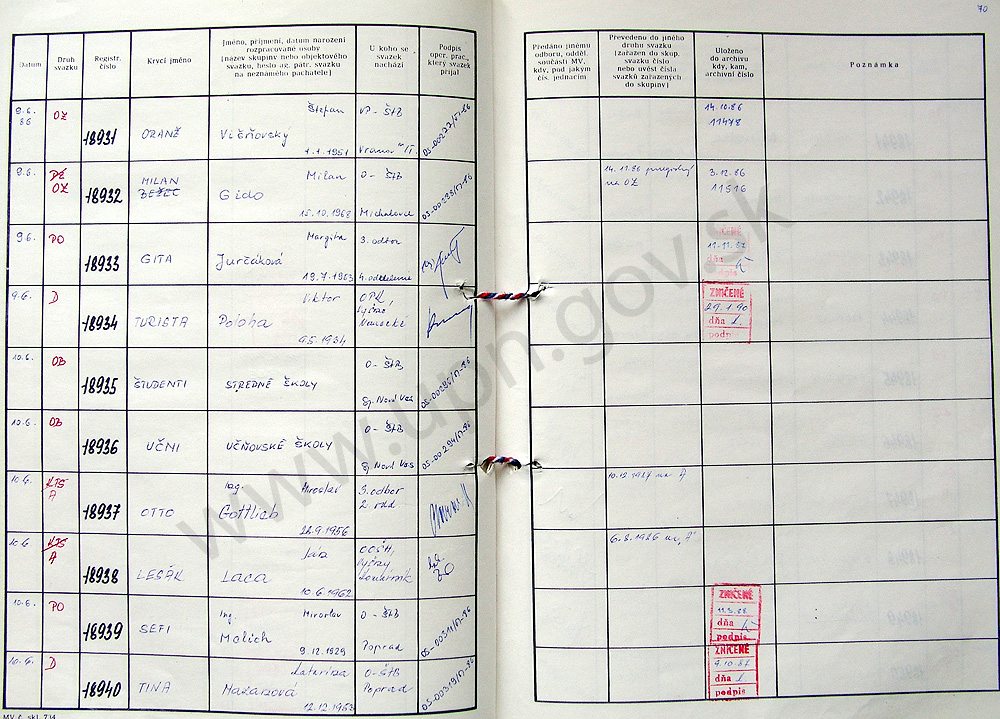 70
Datum
Druh svazku
Registr. číslo
Krycí jméno
Jméno, příjmení, datum narození rozpracované osoby
(název skupiny nebo objektového svazku, heslo ag. pátr. svazku na neznámého pachatele)
U koho se svazek nachází
Podpis oper. prac., který svazek přijal
Předáno jinému odboru, odděl. součásti MV, kdy, pod jakým čís. jednacím
Převedeno do jiného druhu svazku (zařazen do skup. svazku číslo nebo uvést čísla svazků zařazených do skupiny)
Uloženo do archivu kdy, kam, archivní číslo
Poznámka
9.6. 86
OZ
18931
ORANŽ
Štefan
Višňovský
1.1.1951
VP - ŠtB
Vranov
14.10.86
11478
9.6.
OZ
18932
MILAN
Milan
Gido
15.10.1968
O - ŠtB
Michalovce
14.11.86
na OZ
3.12.86
11516
9.6.
PO
18933
GITA
Margita
Jurčáková
19.7.1963
3. odbor
4. oddelenie
ZNIČENÉ
11.11.87
dňa
podpis
9.6.
D
18934
TURISTA
Viktor
Poloha
9.5.1934
ZNIČENÉ
29.1.90
dňa
podpis
10.6.
OB
18935
ŠTUDENTI
STREDNÉ ŠKOLY
O - ŠtB
Sp. Nová Ves
10.6.
OB
18936
UČNI
UČŇOVSKÉ ŠKOLY
O - ŠtB
Sp. Nová Ves
05-00294/17-86
10.6.
KTS
A
18937
OTTO
Ing. Miroslav
Gottlieb
22.9.1956
3. odbor
10.12.1987 na A
10.6.
KTS
A
18938
LESÁK
Ján
Laca
10.6.1962
6.8.1986 na „A"
10.6.
PO
18939
SEFI
Ing. Miroslav
Malich
9.12.1929
O - ŠtB
Poprad
05-00311/17-86
ZNIČENÉ
11.3.88
dňa
podpis
10.6.
D
18940
TINA
Katarína
Mazanová
12.12.1953
O - ŠtB
Poprad
05-00319/17-86
ZNIČENÉ
9.10.87
dňa
podpis
MV č. skl. 734
www.upn.gov.sk